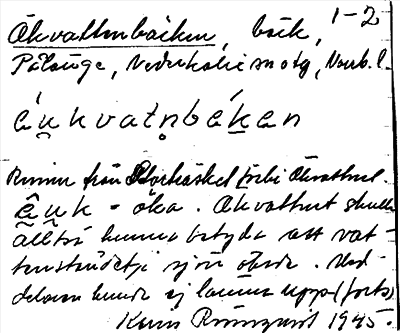 Åkvattenbäcken, bäck, 1-2
Pålänge, Nederkalix sn o tg, Norrb. l.
áu̯kvatn̥bäḱen
Rinner från förbi Åkvattnet.
âuk = öka. Åkvattnet skulle
alltså kunna betyda att vat-
tenståndet i sjön ökade. Med-
delaren kunde ej lämna upp (forts)
Karin Rönnqvist 1945.